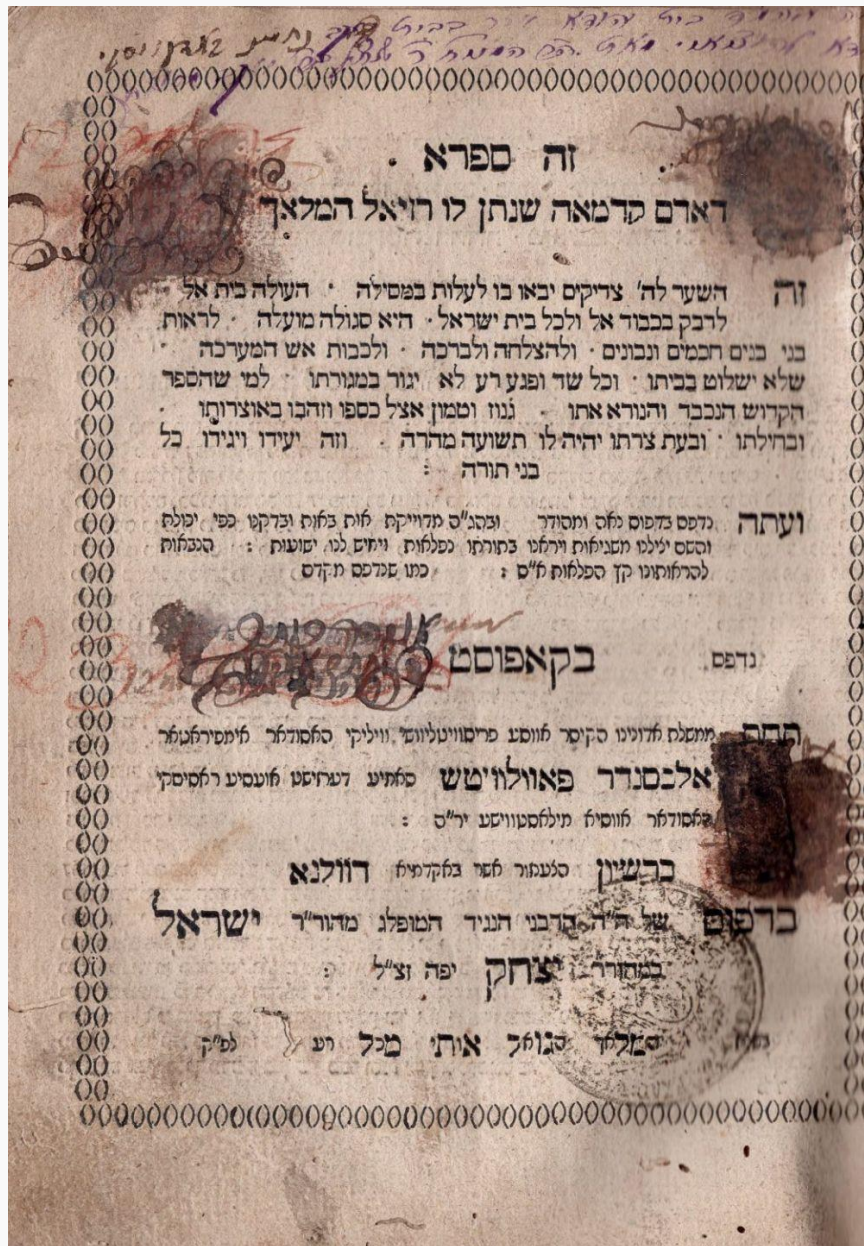 זה ספרא
דאדם קדמאה שנתן לו רזיאל המלאך
זה השער לה' צדיקים יבאו בו לעלות במסילה · העולה בית אל
לדבק בכבוד אל ולכל בית ישראל · היא סגולה מועלה · לראות
בני בנים חכמים ונבונים · ולהצלחה ולברכה · ולכבות אש המערכה ·
שלא ישלוט בביתו · וכל שד ופגע רע לא יגור במגורתו · למי שהספר
הקדוש הנכבד והנורא אתו · גנוז וטמון אצל כספו וזהבו באוצרותו ·
ובחילתו · ובעת צרתו יהיה לו תשועה מהרה · וזה יעידו ויגידו כל
בני תורה :
ועתה נדפס בדפוס נאה ומהודר ובהג"ה מדוייקת אות באות ובדקנו כפי יכולת
והשם יצילנו משגיאות ויראנו בתורתו נפלאות ויחיש לנו ישועות : הנבאות
להראותינו קץ הפלאות א"ס : כמו שנדפס מקדם
נדפס בקאפוסט
תחת ממשלת אדונינו הקיסר אווסע פריסוויטליווש' וויליקי האסודאר אימפיראטאר
אלכסנדר פאוולוויטש סאמיע דערזשט אועסיע ראסיסקי
האסודאר אווסיא מילאסטווישע יר"ה :
ברשיון הצענזור אשר באקדמיא דווילנא
בדפוס של ה"ה הרבני הנגיד המופלג מהור"ר ישראל
במהורר יצחק יפה זצ"ל :
המלאך הגואל אותי מכל רע לפ"ק